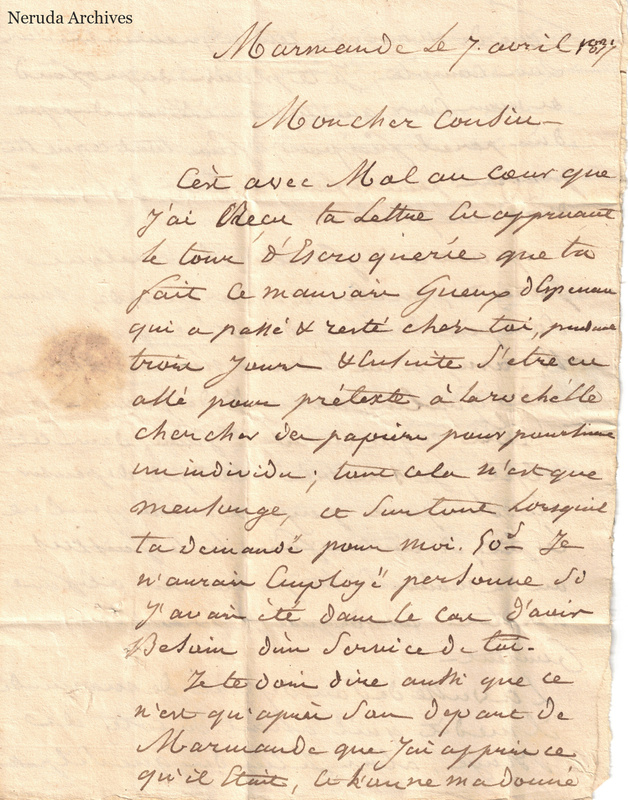 Neruda Archives
Marmande le 7. avril
Mon cher Cousin
C'est avec Mal au Cœur que
J'ai Reçu ta Lettre En apprenant
le tour d'Escroquerie que ta
fait ce mauvais Gueux
qui a passé & resté chez toi, pendant
trois jours & Ensuite S'etre en
allé pour prétexte à Larochelle
chercher des papiers pour poursuivre
un individu; tout cela n'est que
mensonge, et Surtout Lorsquil
ta demandé pour moi. 50 Je
n'aurais Employé personne Si
J'avais été dans le cas d'avoir
Besoin d'un Service de toi.
Je te dois dire aussi que ce
n'est qu'après Son depart de
Marmande que J'ai appris ce
qu'il Etait, ma donné